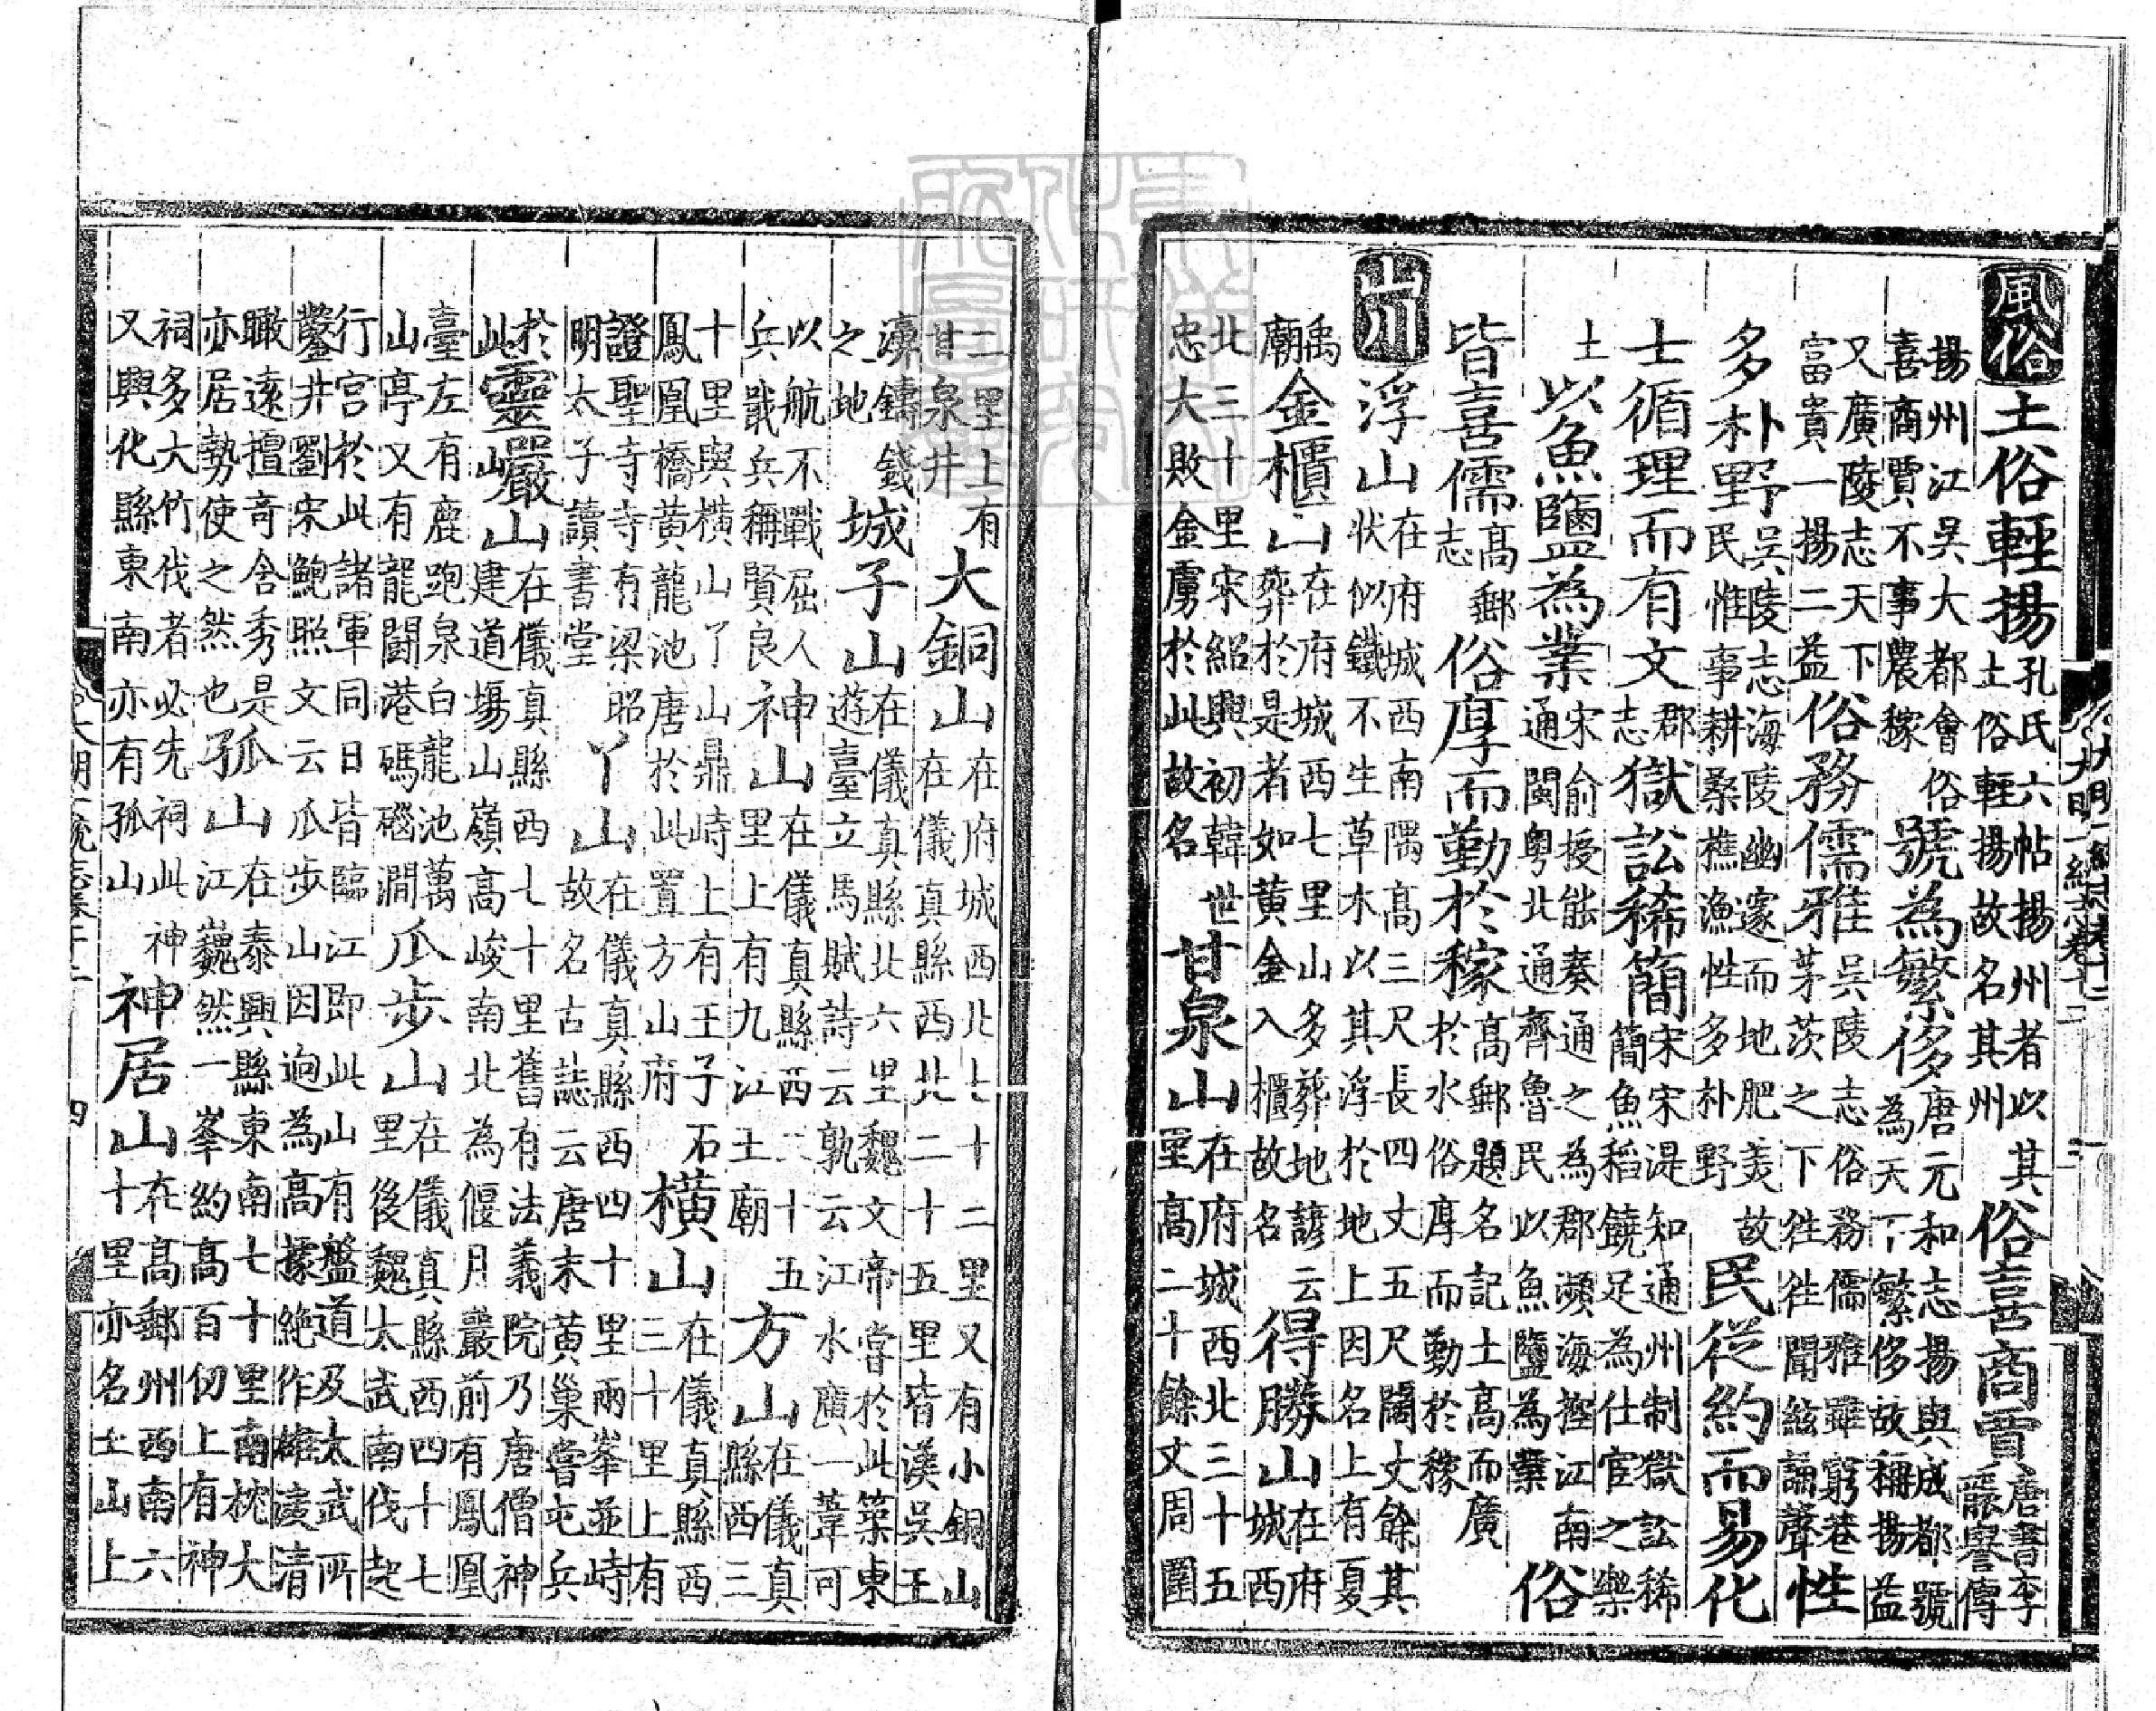 風俗 土俗輕揚 孔氏六帖揚州者以其土俗輕揚故名其州 俗喜商賈 唐書李襲譽傳
揚州江吳大都會俗喜商賈不事農稼 號為繁侈 唐元和志揚與成都號為天下繁侈故稱揚益
又廣陵志天下富貴一揚二益 俗務儒雅 吳陵志俗務儒雅雖窮巷茅茨之下徃徃聞絃誦聲 性
多朴野 吳陵志海陵幽邃而地肥美故民惟事耕桑樵漁性多朴野 民從約而易化
士循理而有文 郡志 獄訟稀簡 宋宋湜知通州制獄訟稀簡魚稻饒足為仕官之樂
土 以魚鹽為業 宋俞授能奏通之為郡瀕海控江南通閩粤北通齊魯民以魚鹽為業 俗
皆喜儒 高郵志 俗厚而勤於稼 高郵題名記土高而廣於水俗厚而勤於稼
山川 浮山 在府城西南隅高三尺長四丈五尺闊丈餘其状似鐵不生草木以其浮於地上因名上有夏
禹廟 金櫃山 在府城西七里山多葬地諺云葬於是者如黄金入櫃故名 得勝山 在府城西
北三十里宋紹興初韓世忠大敗金虜於此故名 甘泉山 在府城西北三十五里高二十餘丈周圍
二里上有甘泉井 大銅山 在府城西北七十二里又有小銅山在儀真縣西北二十五里皆漢吳王
濞鑄錢之地 城子山 在儀真縣北六里魏文帝嘗於此築東遊臺立馬賦詩云孰云江水廣一葦可
以航不戰屈人兵戢兵稱賢良 神山 在儀真縣西二十五里上有九江土廟 方山 在儀真縣西三
十里與横山了山鼎峙上有王子石鳳凰橋黄龍池唐於此置方山府 横山 在儀真縣西三十里上有
證聖寺寺有梁昭明太子讀書堂 丫山 在儀真縣西四十里兩峯並峙故名古誌云唐末黄巢嘗屯兵
於此 靈巖山 在儀真縣西七十里舊有法義院乃唐僧神建道塲山嶺高峻南北為偃月巖前有鳳凰
臺左有鹿跑泉白龍池萬山亭又有龍鬭港碼碯澗 瓜步山 在儀真縣西四十七里後魏太武南伐起
行宫於此諸軍同日皆臨江即此山有盤道及太武所鑿井劉宋鮑照文云瓜步山因逈為高據絶作雄淩清
瞰遠擅竒含秀是亦居勢使之然也 孤山 在泰興縣東南七十里南枕大江巍然一峯約高百仞上有神
祠多大竹伐者必先祠此神神又興化縣東南亦有孤山 神居山 在高郵州西南六十里亦名土山上
大明一統志卷十二 四